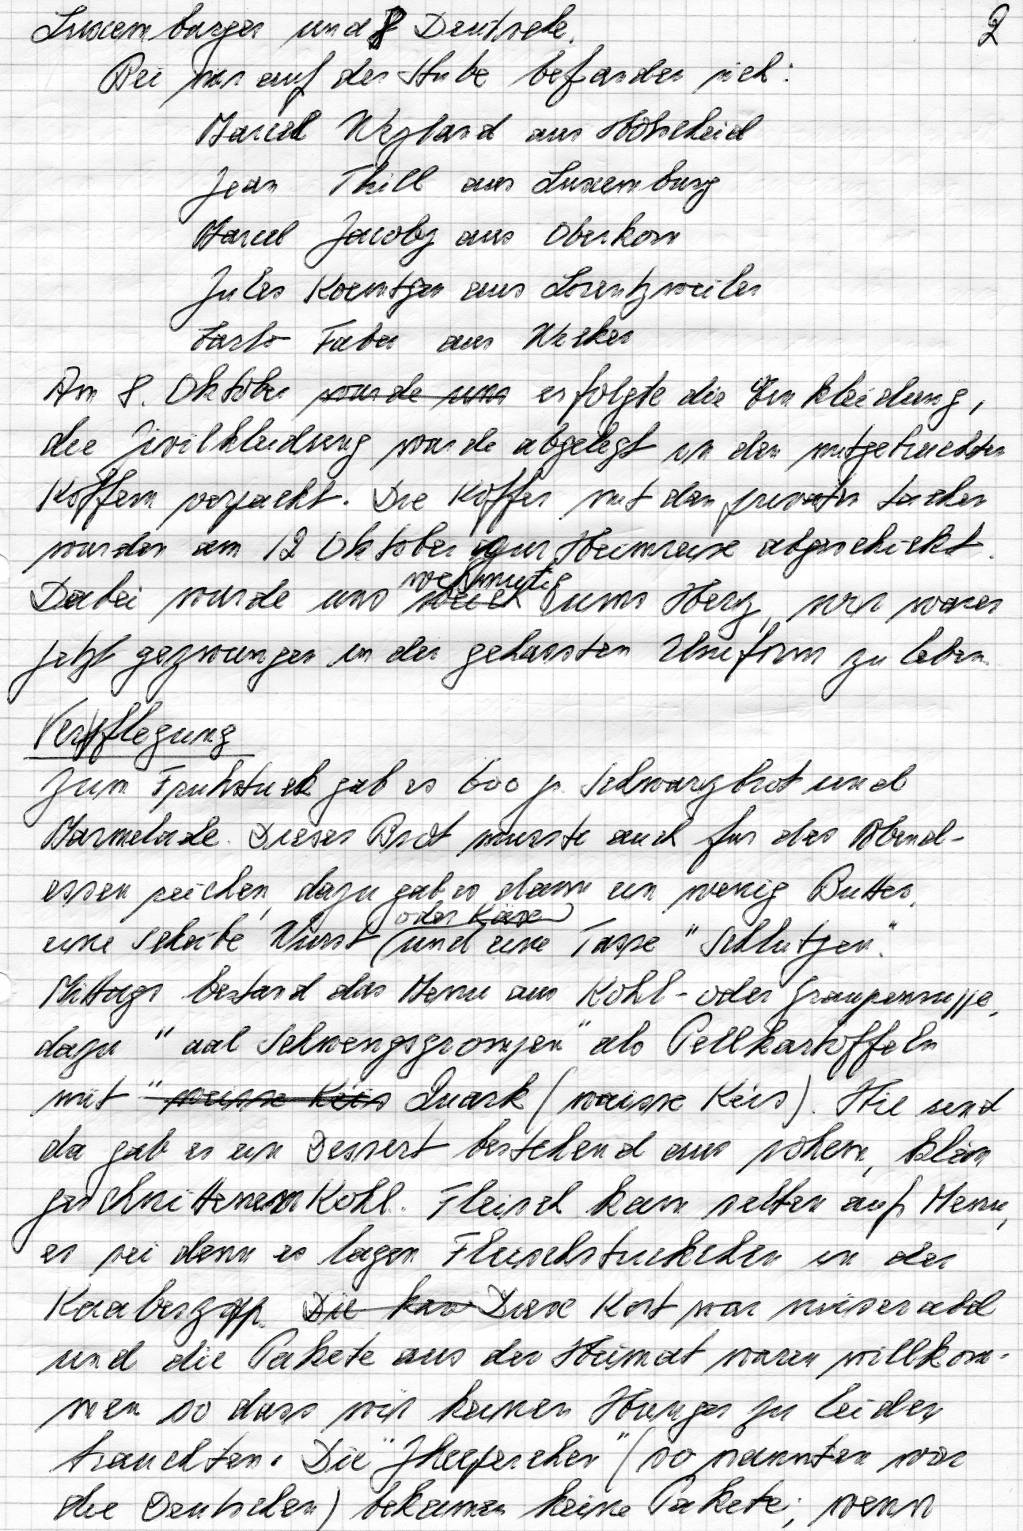 2
Luxemburger und 8 Deutsche.
Bei uns auf der Stube befanden sich:
Marcel Weyland aus Hoscheid
Jean Thill aus Luxemburg
Marcel Jacoby aus Oberkorn
Jules Koentgen aus Lorentzweiler
Carlo Faber aus Wecker
Am 8. Oktober wurde uns erfolgte die Einkleidung,
die Zivilkleidung wurde abgelegt in den mitgebrachten
Koffern verpackt. Die Koffer mit den privaten Sachen
wurden am 12 Oktober zur Heimreise abgeschickt.
wehmutig
Dabei wurde uns ums Herz, wir waren
jetzt gezwungen in der gehassten Uniform zu leben.
Verpflegung
Zum Fruhstuck gab es 600 gr. Schwarzbrot und
Marmelade. Dieses Brot musste auch fur das Abend-
essen reichen, dazu gab es dann ein wenig Butter,
oder Käse
eine Scheibe Wurst (und eine Tasse "Schlutzen".
Mittags bestand das Menu aus Kohl- oder Graupensuppe,
dazu " aal Schwengsgromper" als Pellkartoffeln
mit " waisse Kéis Quark (waisse Kéis). Hie und
da gab es ein Dessert bestehend aus rohem, klein
geschnittenem Kohl. Fleisch kam selten auf Menu,
es sei denn es lagen Fleischstuckchen in der
Kaabeszopp. Die kam Diese Kost war miserabel
und die Pakete aus der Heimat waren willkom-
men so dass wir keinen Hunger zu leiden
brauchten. Die (so nannten wir
die Deutschen) bekamen keine Pakete; wenn